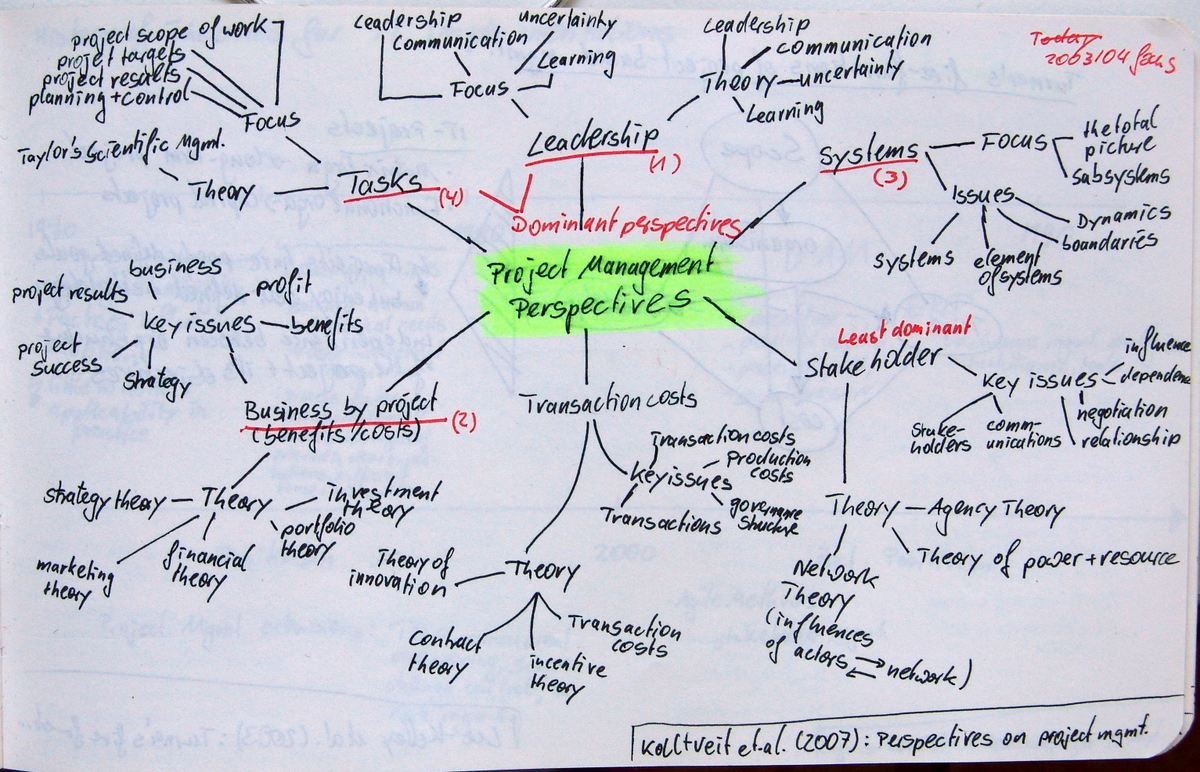 project scope of work
project targets
project results
planning + control
Focus
Taylor's Scientific Mgmt.
Theory
Tasks
(4)
Leadership
Communication
uncertainty
Learning
Focus
Leadership
(1)
Leadership
communication
Theory
uncertainty
Learning
Today
2003/04
Systems
(3)
Focus
the total
picture
subsystems
Issues
Dynamics
boundaries
systems
element
of systems
Dominant perspectives
Project Management
Perspectives
business
project results
profit
key issues
benefits
project
success
strategy
Business by project
(benefits / costs)
(2)
strategy theory
Theory
investment
theory
portfolio
theory
financial
theory
marketing
theory
Transaction costs
Transaction costs
key issues
Production
costs
governance
structure
Transactions
Theory
Theory of
innovation
contract
theory
incentive
theory
Transaction
costs
Least dominant
Stakeholder
key issues
influence
dependence
negotiation
relationship
comm-
unications
Stake-
holders
Theory
Agency Theory
Theory of power + resource
Network
Theory
(influences
of actors
network)
Kolltveit et.al. (2007): Perspectives on project mgmt.